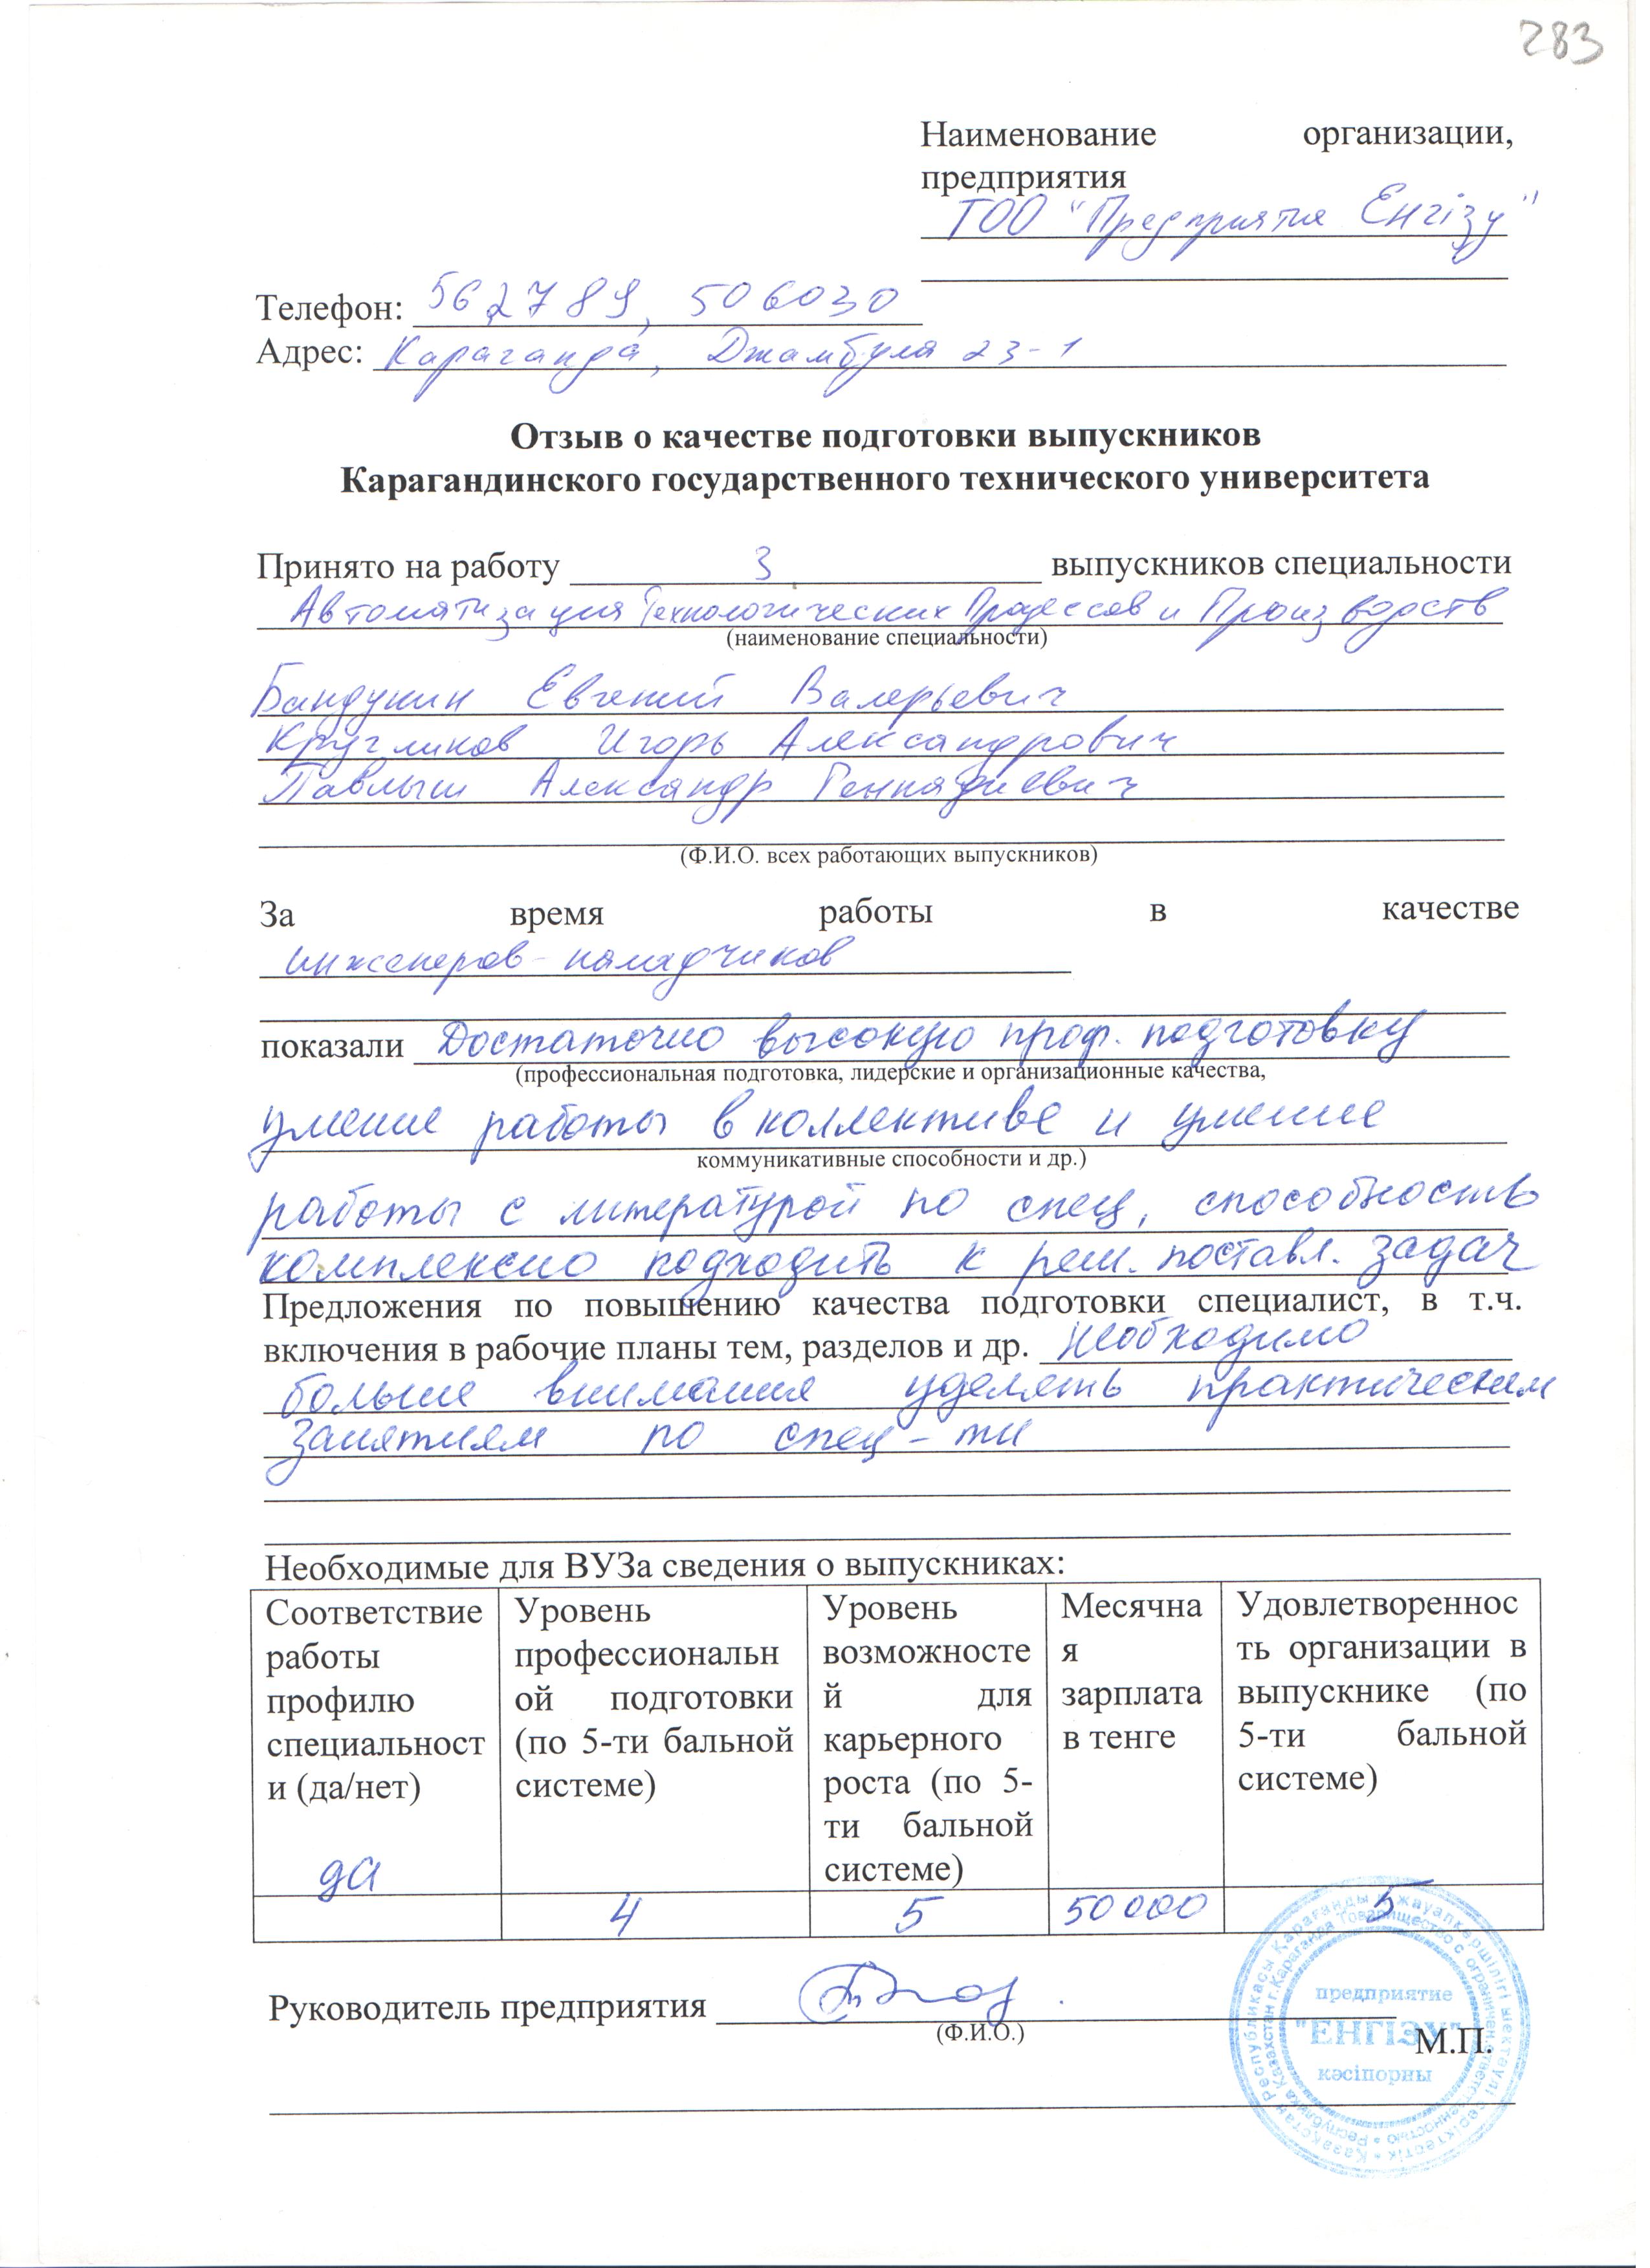 283
Наименование организации,
предприятия
ТОО "Предприятие Енгізу"
Телефон: 562789, 506030
Адрес: Караганда, Джамбула 23-1
Отзыв о качестве подготовки выпускников
Карагандинского государственного технического университета
Принято на работу 3 выпускников специальности
Автоматизация Технологических Процессов и Производств
(наименование специальности)
Бандукин Евгений Валерьевич
Кругликов Игорь Александрович
Павлыш Александр Геннадиевич
(Ф.И.О. всех работающих выпускников)
За время работы в качестве
инженеров-наладчиков
показали Достаточно высокую проф. подготовку
(профессиональная подготовка, лидерские и организационные качества,
умение работы в коллективе и умение
коммуникативные способности и др.)
работы с литературой по спец, способность
комплексно подходить к реш. поставл. задач
Предложения по повышению качества подготовки специалист, в т.ч.
включения в рабочие планы тем, разделов и др. Необходимо
больше внимания уделять практическим
занятиям по спец-ти
Необходимые для ВУЗа сведения о выпускниках:
Соответствие
работы
профилю
специальност
и (да/нет)
да
Уровень
профессиональн
ой подготовки
(по 5-ти бальной
системе)
Уровень
возможносте
й для
карьерного
роста (по 5-
ти бальной
системе)
Месячна
я
зарплата
в тенге
Удовлетвореннос
ть организации в
выпускнике (по
5-ти бальной
системе)
4 5 50000 5
Руководитель предприятия
(Ф.И.О.)
М.П.
предприятие
"ЕНГІЗУ"
кәсіпорны